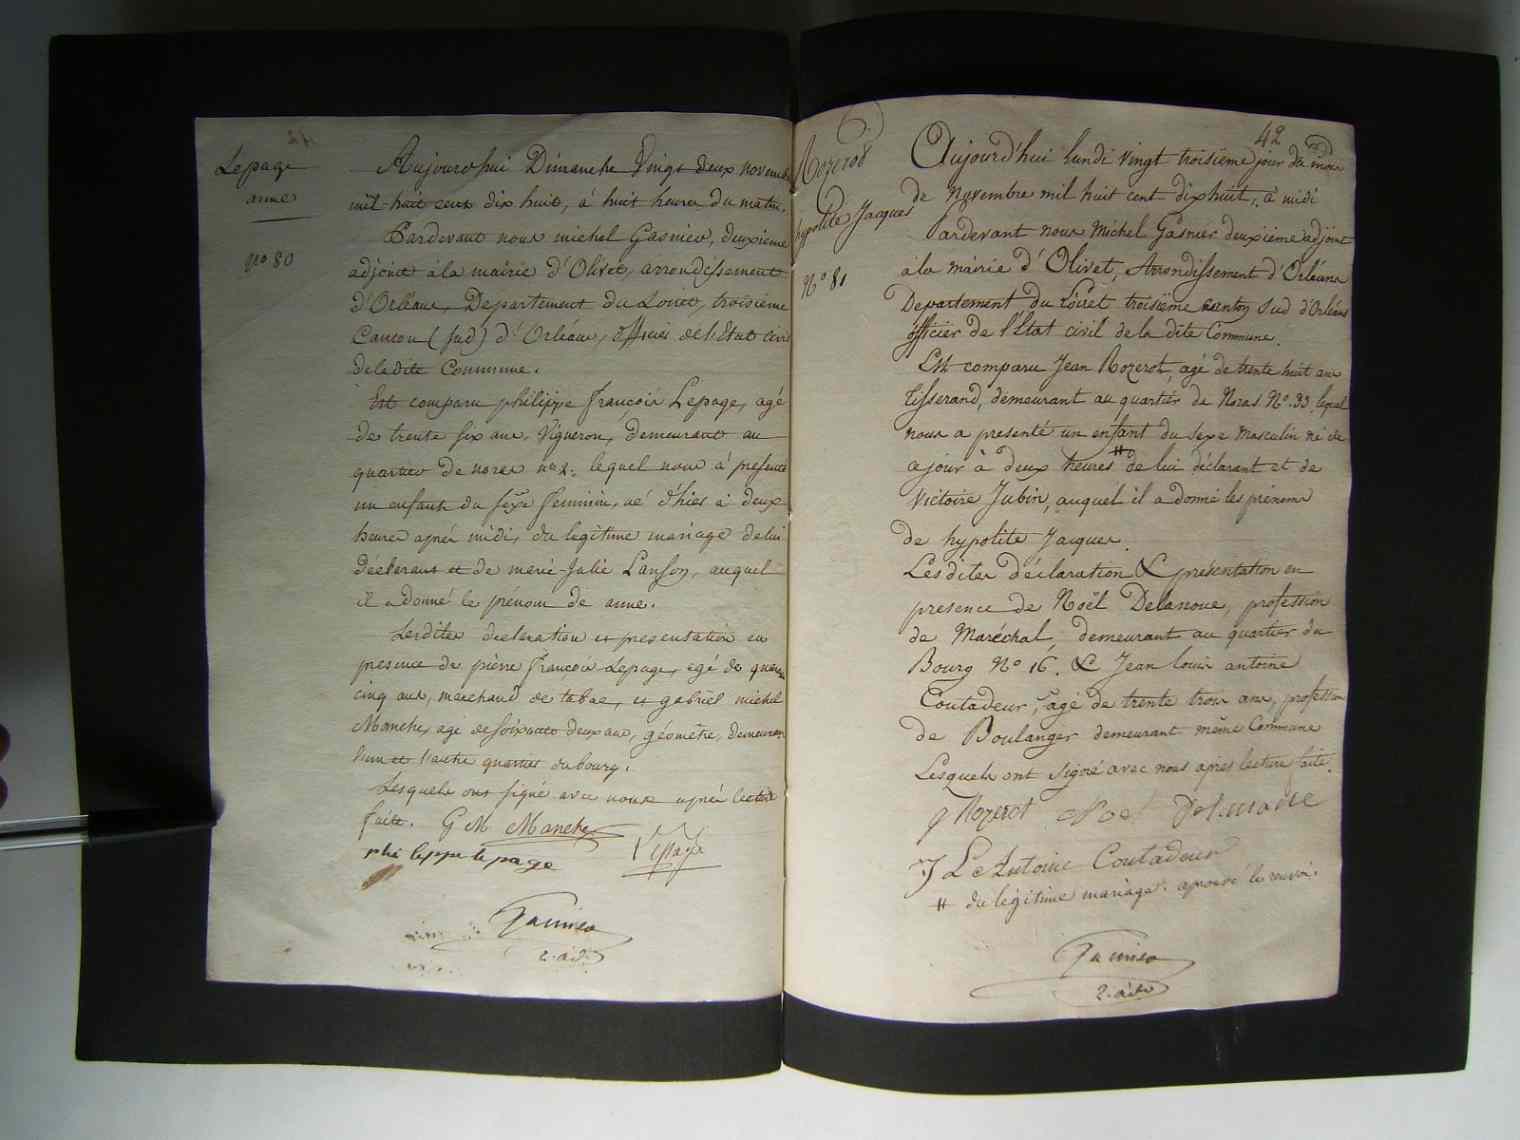 Lepage
anne
No 80
Aujourd'hui Dimanche Vingt deux novemb
mil-huit cent dix huit, à huit heures du matin,
Pardevant nous michel Gasnier, deuxieme
adjoint à la mairie d'Olivet, arrondissement
d'Orléans, Departement du Loiret, troisieme
Canton (sud) d'Orléans, officier de l'Etat civil
de ladite Commune.
Est comparu philippe françois Lepage, agé
de trente six ans, Vigneron, demeurant au
quartier de noras no 2, lequel nous à presenté
un enfant du sexe feminin, né d'hier à deux
heures après midi, du legitime mariage de lui
déclarant et de marie-Julie Lanson, auquel
il a donné le prenom de anne.
Lesdites declaration et presentation en
presence de pierre françois Lepage, agé de quarante
cinq ans, marchand de tabac, et gabriel michel
Manche, agé de soixante deux ans, géomètre, demeurant
l'un et l'autre quartier du bourg.
Lesquels ont signé avec nous après lecture
faite. G M Manche
phi lippe le page Lepage
Gasnier
2. adt.
42
Rozerot
hypolite Jacques
No 81
Aujourd'hui lundi vingt troisième jour du mois
de Novembre mil huit cent dix huit, à midi
Pardevant nous Michel Gasnier deuxième adjoint
à la mairie d'Olivet, Arrondissement d'Orléans
Departement du Loiret troisième canton Sud d'Orléans
officier de l'Etat civil de la dite Commune.
Est comparu Jean Rozerot, agé de trente huit ans
tisserand, demeurant au quartier de Noras No. 33, lequel
nous a presenté un enfant du sexe masculin né ce
ajour à deux heures # de lui déclarant et de
Victoire Jubin, auquel il a donné les prénoms
de hypolite Jacques.
Les dites déclaration & présentation en
presence de Noël Delanoue, profession
de Maréchal, demeurant au quartier du
Bourg No 16. & Jean louis antoine
Coutadeur, agé de trente trois ans, profession
de Boulanger demeurant même Commune
Lesquels ont signé avec nous après lecture faite.
J Rozerot Noel Delanoue
J L Antoine Coutadeur
# du légitime mariage. aprouvé le renvoi.
Gasnier
2. adt